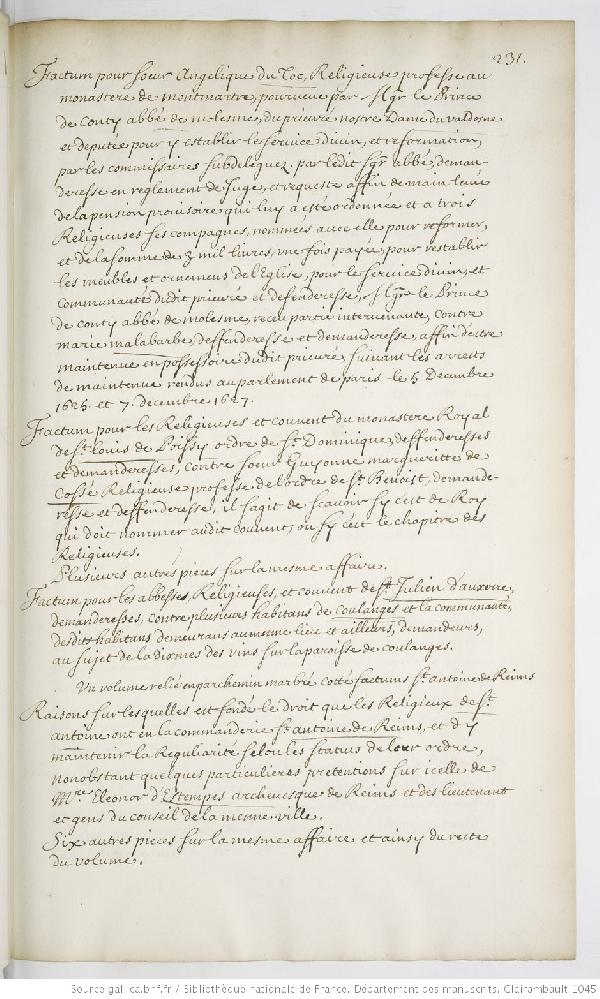 231.
Factum pour soeur Angelique du Toc, Religieuse professe au
monastere de montmartre, pourueüe par Mgr le Prince
de Conty abbé de molesme, du prieuré nostre Dame du valdosne
et deputée pour y establir le service divin, et reformation,
par les commissaires subdeleguez par ledit Sgr abbé, deman-
deresse en reglement de Juge, et requeste affin de main leuée
de la pension prouisoire qui luy a esté ordonnée et a trois
Religieuses ses compagnes, nommées avec elle pour reformer,
et de la somme de 3 mil livres, une fois payée, pour restablir
les meubles et ornemens de l'Eglise, pour le service divin, et
communauté dudit prieuré et defenderesse, Mgr le Prince
de Conty abbé de molesme, receu partie interuenante, contre
marie malabarbe, deffenderesse et demanderesse, affin d'estre
maintenue en possessoire dudit prieuré, suiuant les arrests
de maintenue rendus au parlement de paris le 5 Decembre
1625. et 7. decembre 1627.
Factum pour les Religieuses et couuent du monastere Royal
de St. louis de Poissy ordre de St. Dominique, deffenderesses
et demanderesses, contre soeur Guyonne margueritte de
Cossé Religieuse professe de l'ordre de St. Benoist, demande-
resse et deffenderesse, il s'agit de scauoir sy c'est de Roy
qui doit nommer audit couuent, ou sy c'est le chapitre des
Religieuses.
Plusieurs autres pieces sur la mesme affaire.
Factum pour les abbesses, Religieuses, et couuent de St. Julien d'auxerre,
demanderesses, contre plusieurs habitans de coulanges et la communauté,
desdits habitans demeurans au mesme lieu et ailleurs, demandeurs,
au sujet de la dixmes des vins sur la paroisse de coulanges.
Un volume relié en parchemin marbré cotté factums St. antoine de Reims
Raisons sur lesquelles est fondé le droit que les Religieux de St.
antoine ont en la commanderie St. antoine de Reims, et d'y
maintenir la Regularité selon les statuts de leur ordre,
nonobstant quelques particulieres pretentions sur icelle de
Mre. Eleonor d'Estempes archeuesque de Reims et des lieutenant
et gens du conseil de la mesme ville.
Six autres pieces sur la mesme affaire et ainsy du reste
du volume.
Source gallica.bnf.fr / Bibliothèque nationale de France. Département des manuscrits. Clairambault 1045